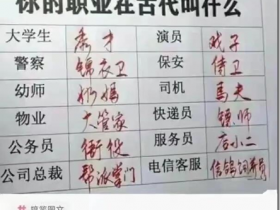 你的职业在古代叫什么
大学生 秀才 演员 戏子
警察 锦衣卫 保安 侍卫
幼师 奶妈 司机 马夫
物业 大管家 快递员 镖师
公务员 衙役 服务员 店小二
公司总裁 帮派掌门 电信客服 信鸽饲养员